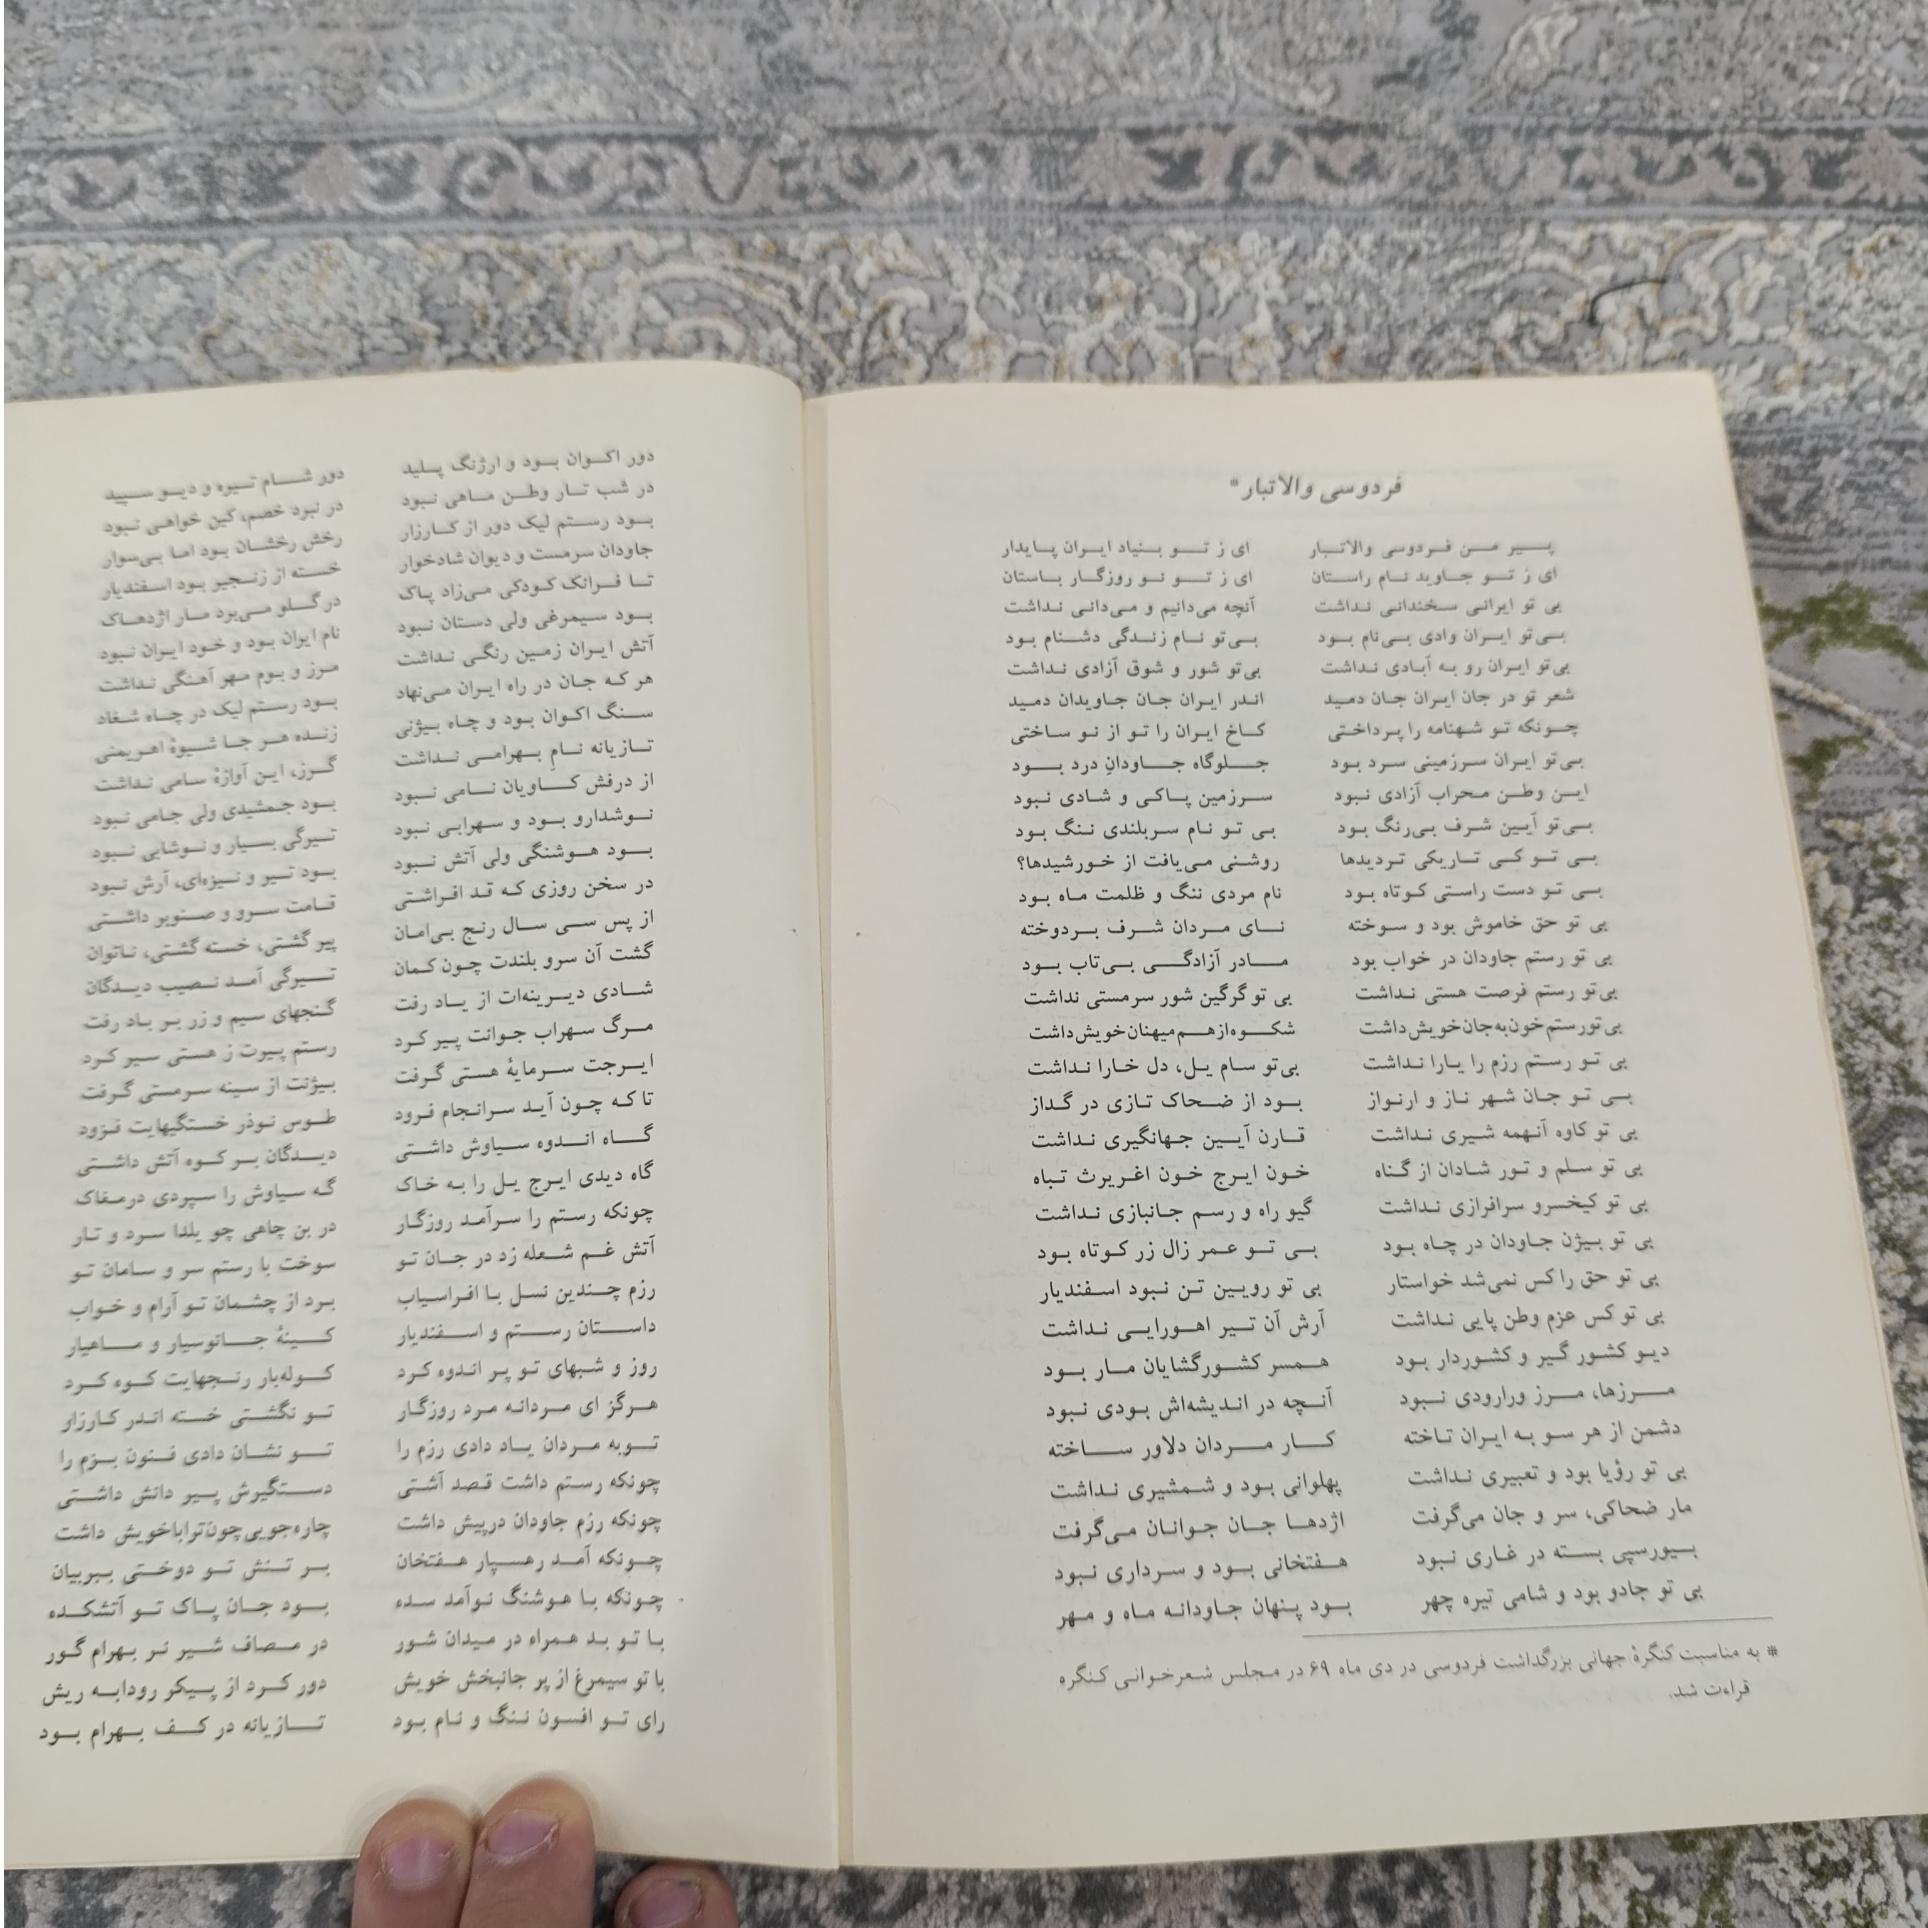 فردوسی والاتبار*
پیر من فردوسی والاتبار ای ز تو بنیاد ایران پایدار
ای ز تو جاوید نام راستان ای ز تو نو روزگار باستان
بی تو ایرانی سخندانی نداشت آنچه می‌دانیم و می‌دانی نداشت
بی‌تو ایران وادی بی‌نام بود بی‌تو نام زندگی دشنام بود
بی‌تو ایران رو به آبادی نداشت بی‌تو شور و شوق آزادی نداشت
شعر تو در جان ایران جان دمید اندر ایران جان جاویدان دمید
چونکه تو شهنامه را پرداختی کاخ ایران را تو از نو ساختی
بی‌تو ایران سرزمینی سرد بود جلوگاه جاودانِ درد بود
این وطن محراب آزادی نبود سرزمین پاکی و شادی نبود
بی‌تو آیین شرف بی‌رنگ بود بی تو نام سربلندی ننگ بود
بی تو کی تاریکی تردیدها روشنی می‌یافت از خورشیدها؟
بی تو دست راستی کوتاه بود نام مردی ننگ و ظلمت ماه بود
بی تو حق خاموش بود و سوخته نای مردان شرف بردوخته
بی تو رستم جاودان در خواب بود مادر آزادگی بی‌تاب بود
بی‌تو رستم فرصت هستی نداشت بی تو گرگین شور سرمستی نداشت
بی‌تورستم‌خون‌به‌جان‌خویش‌داشت شکوه‌ازهم‌میهنان‌خویش‌داشت
بی تو رستم رزم را یارا نداشت بی‌تو سام یل، دل خارا نداشت
بی تو جان شهر ناز و ارنواز بود از ضحاک تازی در گداز
بی تو کاوه آنهمه شیری نداشت قارن آیین جهانگیری نداشت
بی تو سلم و تور شادان از گناه خون ایرج خون اغریرث تباه
بی تو کیخسرو سرافرازی نداشت گیو راه و رسم جانبازی نداشت
بی تو بیژن جاودان در چاه بود بی تو عمر زال زر کوتاه بود
بی تو حق را کس نمی‌شد خواستار بی تو رویین تن نبود اسفندیار
بی تو کس عزم وطن پایی نداشت آرش آن تیر اهورایی نداشت
دیو کشور گیر و کشوردار بود همسر کشورگشایان مار بود
مرزها، مرز ورارودی نبود آنچه در اندیشه‌اش بودی نبود
دشمن از هر سو به ایران تاخته کار مردان دلاور ساخته
بی تو رؤیا بود و تعبیری نداشت پهلوانی بود و شمشیری نداشت
مار ضحاکی، سر و جان می‌گرفت اژدها جان جوانان می‌گرفت
بیورسپی بسته در غاری نبود هفتخانی بود و سرداری نبود
بی تو جادو بود و شامی تیره چهر بود پنهان جاودانه ماه و مهر
* به مناسبت کنگرهٔ جهانی بزرگداشت فردوسی در دی ماه ۶۹ در مجلس شعرخوانی کنگره
قراءت شد.
دور اکوان بود و ارژنگ پلید دور شام تیره و دیو سپید
در شب تار وطن ماهی نبود در نبرد خصم، کین خواهی نبود
بود رستم لیک دور از کارزار رخش رخشان بود اما بی‌سوار
جاودان سرمست و دیوان شادخوار خسته از زنجیر بود اسفندیار
تا فرانک کودکی می‌زاد پاک در گلو می‌برد مار اژدهاک
بود سیمرغی ولی دستان نبود نام ایران بود و خود ایران نبود
آتش ایران زمین رنگی نداشت مرز و بوم مهر آهنگی نداشت
هر که جان در راه ایران می‌نهاد بود رستم لیک در چاه شغاد
سنگ اکوان بود و چاه بیژنی زنده هر جا شیوهٔ اهریمنی
تازیانه نامِ بهرامی نداشت گرز، این آوازهٔ سامی نداشت
از درفش کاویان نامی نبود بود جمشیدی ولی جامی نبود
نوشدارو بود و سهرابی نبود تیرگی بسیار و نوشابی نبود
بود هوشنگی ولی آتش نبود بود تیر و نیزه‌ای، آرش نبود
در سخن روزی که قد افراشتی قامت سرو و صنوبر داشتی
از پس سی سال رنج بی‌امان پیر گشتی، خسته گشتی، ناتوان
گشت آن سرو بلندت چون کمان تیرگی آمد نصیب دیدگان
شادی دیرینه‌ات از یاد رفت گنجهای سیم و زر بر باد رفت
مرگ سهراب جوانت پیر کرد رستم پیرت ز هستی سیر کرد
ایرجت سرمایهٔ هستی گرفت بیژنت از سینه سرمستی گرفت
تا که چون آید سرانجام فرود طوس نوذر خستگیهایت فزود
گاه اندوه سیاوش داشتی دیدگان بر کوه آتش داشتی
گاه دیدی ایرج یل را به خاک گه سیاوش را سپردی درمغاک
چونکه رستم را سرآمد روزگار در بن چاهی چو یلدا سرد و تار
آتش غم شعله زد در جان تو سوخت با رستم سر و سامان تو
رزم چندین نسل با افراسیاب برد از چشمان تو آرام و خواب
داستان رستم و اسفندیار کینهٔ جانوسیار و ماهیار
روز و شبهای تو پر اندوه کرد کوله‌بار رنجهایت کوه کرد
هرگز ای مردانه مرد روزگار تو نگشتی خسته اندر کارزار
توبه مردان یاد دادی رزم را تو نشان دادی فنون بزم را
چونکه رستم داشت قصد آشتی دستگیرش پیر دانش داشتی
چونکه رزم جاودان درپیش داشت چاره‌جویی‌چون‌تراباخویش داشت
چونکه آمد رهسپار هفتخان بر تنش تو دوختی ببربیان
چونکه با هوشنگ نوآمد سده بود جان پاک تو آتشکده
با تو بد همراه در میدان شور در مصاف شیر نر بهرام گور
با تو سیمرغ از پر جانبخش خویش دور کرد از پیکر رودابه ریش
رای تو افسون ننگ و نام بود تازیانه در کف بهرام بود